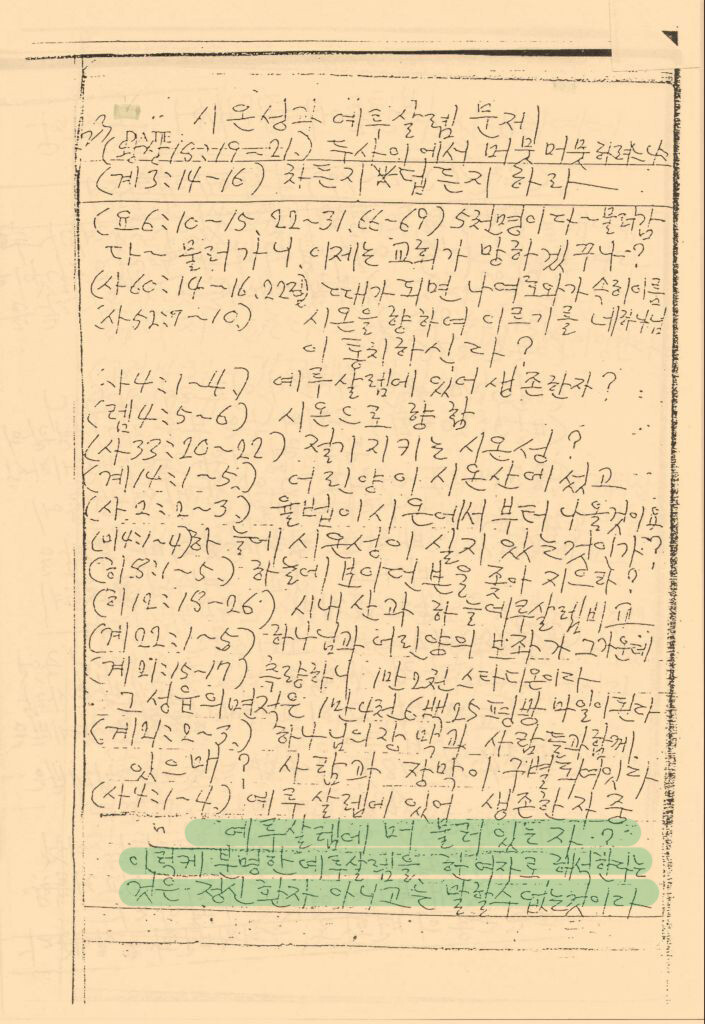 시온성과 예루살렘 문제
DATE
(왕상18:19=21.) 두사이에서 머뭇 머뭇 하려느냐
(계3:14-16) 차든지 덥든지 하라
(요6:10~15, 22~31, 66-69) 5천명이 다~물러감
다~ 물러가니 이제는 교회가 망하겠꾸나?
(사60:14~16, 22절) 때가 되면 나여호와가 속히이룸
사52:7~10) 시온을 향하여 이르기를 네하나님
이 통치하신다?
사4:1~4) 예루살렘에 있어 생존한자?
(렘4:5~6) 시온으로 향함
(사33:20~22) 절기지키는 시온성?
(계14:1~5) 어린양이 시온산에 섰고
(사2:2~3) 율법이 시온에서 부터 나올것이요
(미4:1~4) 하늘에 시온성이 실지 있는것이가?
(히8:1~5) 하늘에 보이던 본을 좇아 지으라?
(히12:18-26) 시내산과 하늘예루살렘비교
(계22:1~5) 하나님과 어린양의 보좌가 그가운데
(계21:15~17) 측량하니 1만2천 스타디온이라
그 성읍의면적은 1만4천6백25평방 마일이된다
(계21:2~3) 하나님의 장막과 사람들과함께
있으매? 사람과 장막이 구별되여잇다
(사4:1~4) 예루살렘에 있어 생존한자 중
예루살렘에 머물러 있는자?
이렇케 분명한 예루살렘을 한여자로 해석한다는
것은 정신환자 아니고는 말할수없는것이라